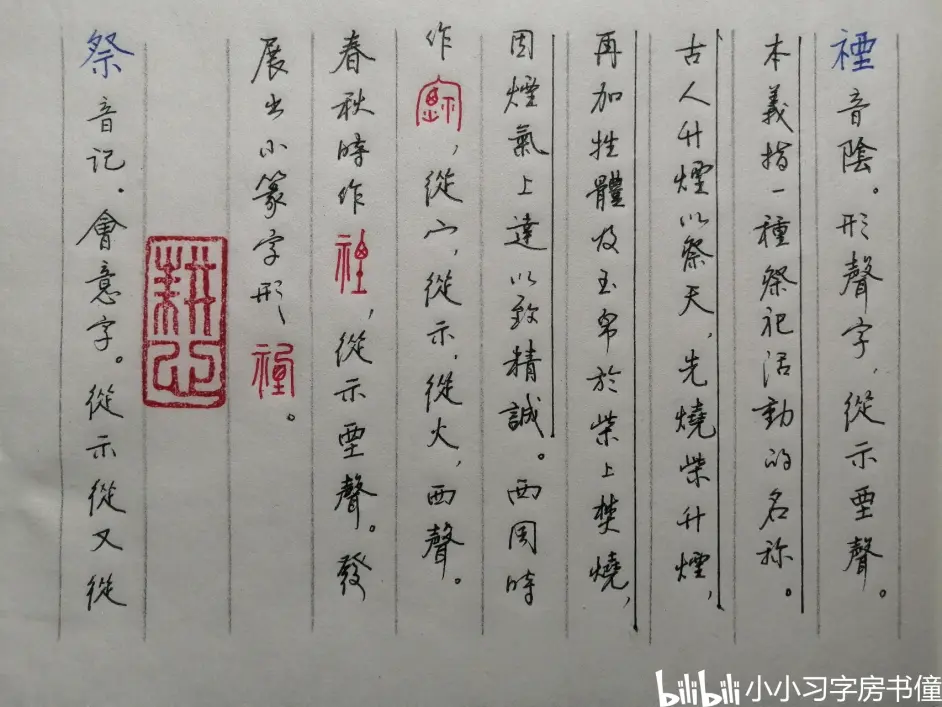 禋音陰。形聲字，從示垔聲。
本義指一種祭祀活動的名称。
古人升煙以祭天，先燒柴升煙，
再加牲體及玉帛於柴上焚燒，
因煙氣上達以致精誠。西周時
作，從宀，從示，從火，西聲。
春秋時作禋，從示垔聲。發
展出小篆字形禋。
耕心
祭音記．會意字。從示從又從
bilibili 小小习字房书僮